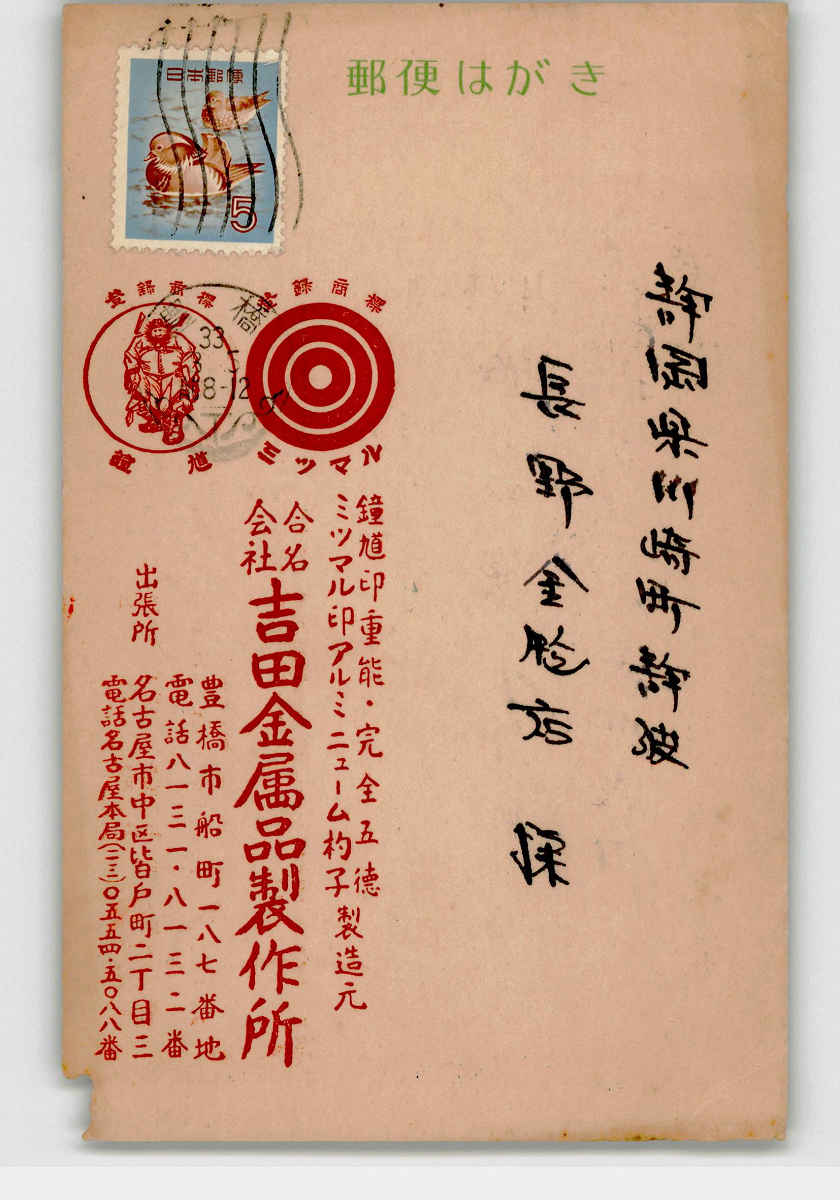 郵便はがき
日本郵便
5
静岡県川崎町静波
長野金物店 様
登録商標
登録商標
橋
33
8-12
鍾馗
ミツマル
鐘馗印重能・完全五徳
ミツマル印アルミニューム杓子製造元
合名会社吉田金属品製作所
豊橋市船町一八七番地
電話八一三一・八一三二番
出張所
名古屋市中区皆戸町二丁目三
電話名古屋本局(二三)〇五五四・五〇八八番